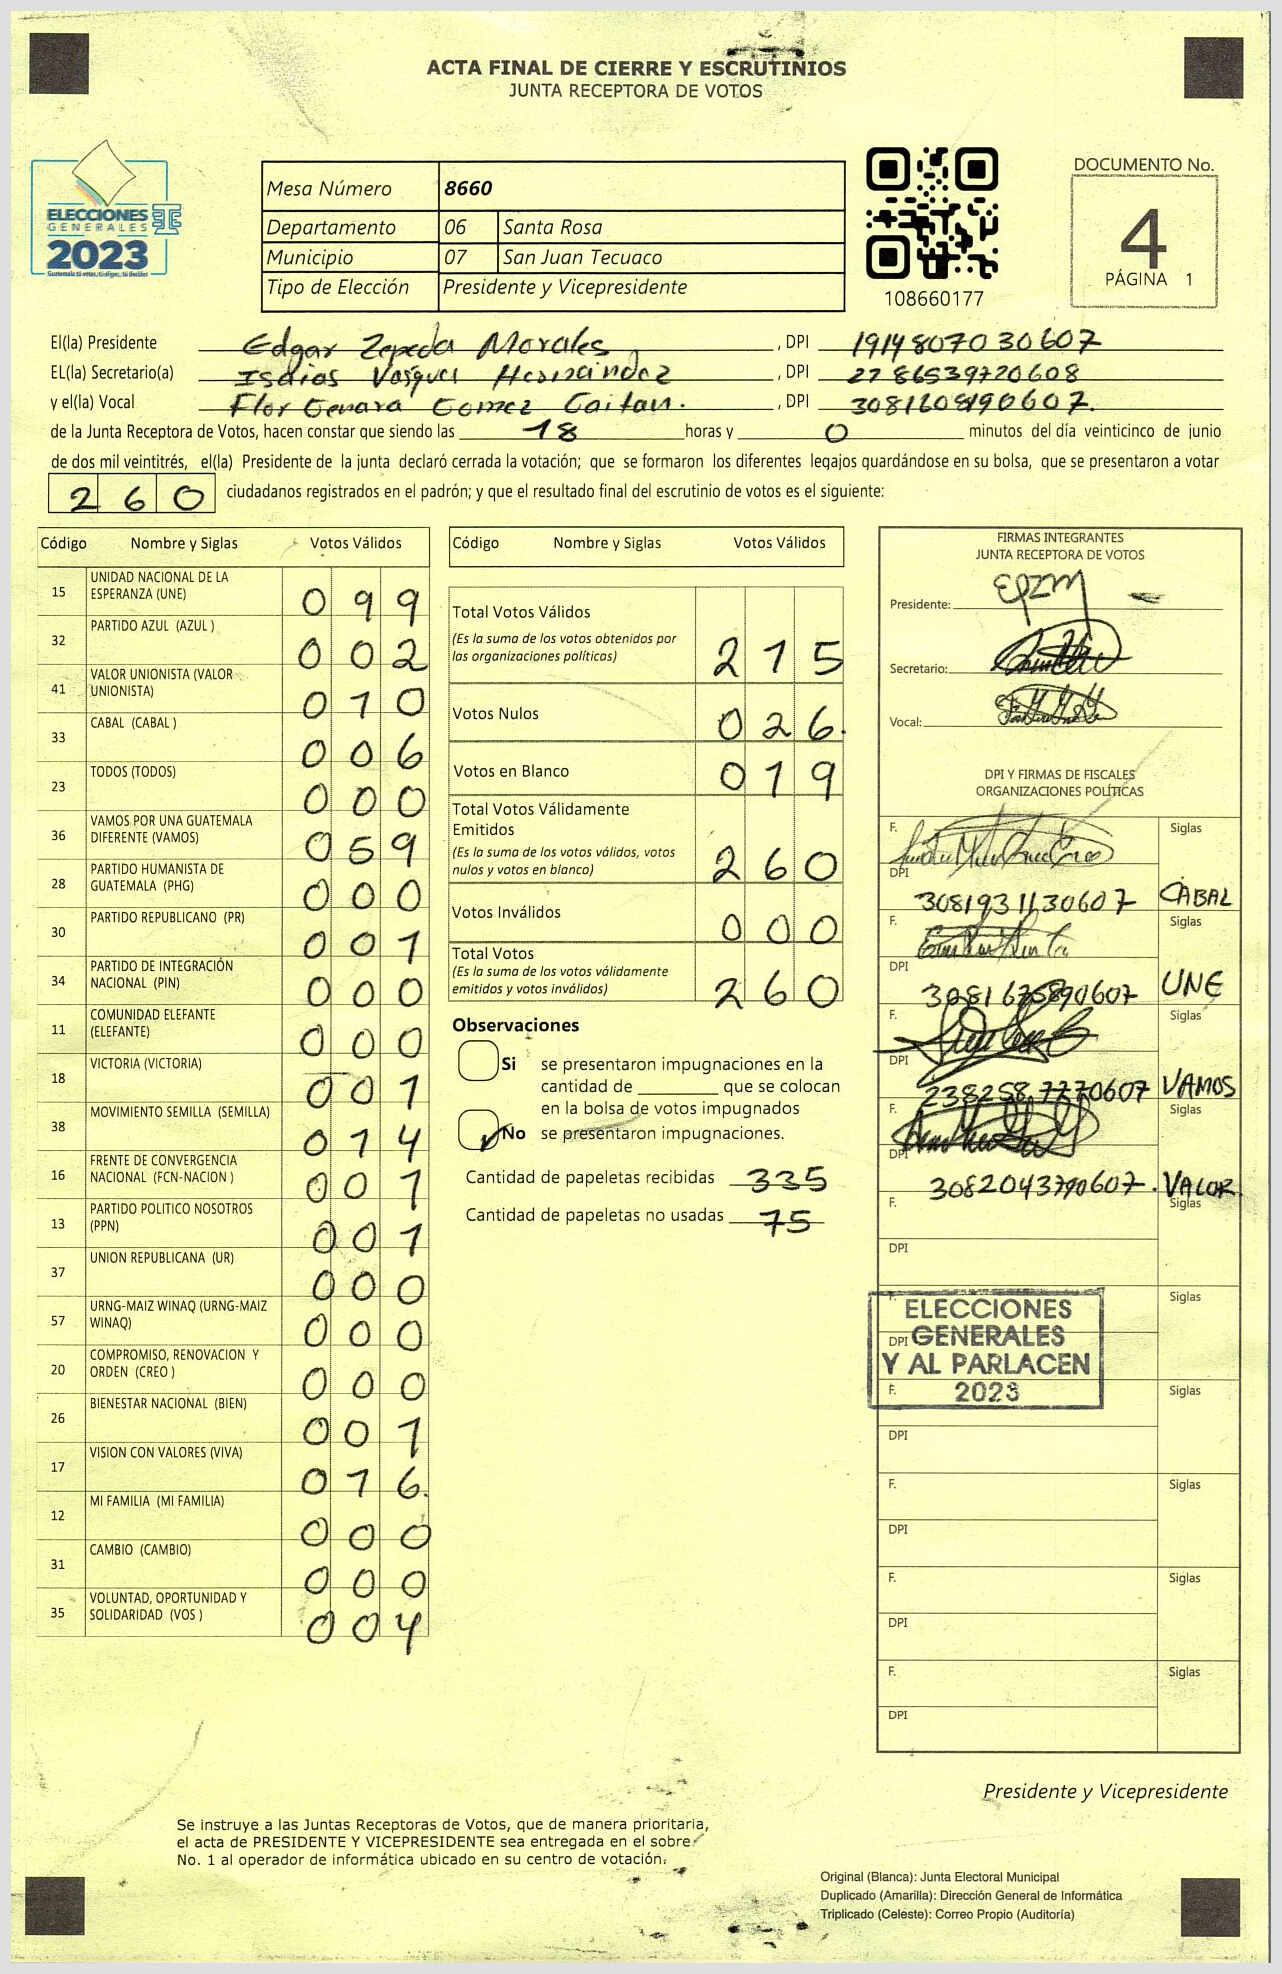 ACTA FINAL DE CIERRE Y ESCRUTINIOS
JUNTA RECEPTORA DE VOTOS
ELECCIONES
GENERALES
2023
Mesa Número 8660
Departamento 06 Santa Rosa
Municipio 07 San Juan Tecuaco
Tipo de Elección Presidente y Vicepresidente
108660177
DOCUMENTO No.
4
PÁGINA 1
El(la) Presidente Edgar Zepeda Morales, DPI 1914807030607
EL(la) Secretario(a) Isaias Vasquez Hernández, DPI 2286539720608
y el(la) Vocal Flor Genara Gomez Gaitan., DPI 3081208190607.
de la Junta Receptora de Votos, hacen constar que siendo las 18 horas y 0 minutos del día veinticinco de junio
de dos mil veintitrés, el(la) Presidente de la junta declaró cerrada la votación; que se formaron los diferentes legajos guardándose en su bolsa, que se presentaron a votar
260 ciudadanos registrados en el padrón; y que el resultado final del escrutinio de votos es el siguiente:
Código Nombre y Siglas Votos Válidos
15 UNIDAD NACIONAL DE LA ESPERANZA (UNE) 099
32 PARTIDO AZUL (AZUL ) 002
41 VALOR UNIONISTA (VALOR UNIONISTA) 010
33 CABAL (CABAL ) 006
23 TODOS (TODOS) 000
36 VAMOS POR UNA GUATEMALA DIFERENTE (VAMOS) 059
28 PARTIDO HUMANISTA DE GUATEMALA (PHG) 000
30 PARTIDO REPUBLICANO (PR) 001
34 PARTIDO DE INTEGRACIÓN NACIONAL (PIN) 000
11 COMUNIDAD ELEFANTE (ELEFANTE) 000
18 VICTORIA (VICTORIA) 001
38 MOVIMIENTO SEMILLA (SEMILLA) 014
16 FRENTE DE CONVERGENCIA NACIONAL (FCN-NACION ) 001
13 PARTIDO POLITICO NOSOTROS (PPN) 001
37 UNION REPUBLICANA (UR) 000
57 URNG-MAIZ WINAQ (URNG-MAIZ WINAQ) 000
20 COMPROMISO, RENOVACION Y ORDEN (CREO ) 000
26 BIENESTAR NACIONAL (BIEN) 001
17 VISION CON VALORES (VIVA) 016.
12 MI FAMILIA (MI FAMILIA) 000
31 CAMBIO (CAMBIO) 000
35 VOLUNTAD, OPORTUNIDAD Y SOLIDARIDAD (VOS ) 004
Código Nombre y Siglas Votos Válidos
Total Votos Válidos
(Es la suma de los votos obtenidos por
las organizaciones políticas) 215
Votos Nulos 026.
Votos en Blanco 019
Total Votos Válidamente
Emitidos
(Es la suma de los votos válidos, votos
nulos y votos en blanco) 260
Votos Inválidos 000
Total Votos
(Es la suma de los votos válidamente
emitidos y votos inválidos) 260
Observaciones
Si se presentaron impugnaciones en la
cantidad de ________ que se colocan
en la bolsa de votos impugnados
No se presentaron impugnaciones.
Cantidad de papeletas recibidas 335
Cantidad de papeletas no usadas 75
FIRMAS INTEGRANTES
JUNTA RECEPTORA DE VOTOS
Presidente:
Secretario:
Vocal:
DPI Y FIRMAS DE FISCALES
ORGANIZACIONES POLÍTICAS
F. Siglas
DPI 3081931130607 CABAL
F. Siglas
DPI 3081675890607 UNE
F. Siglas
DPI 2382587770607 VAMOS
F. Siglas
DPI 3082043790607. VALOR
F. Siglas
DPI
F. Siglas
DPI
ELECCIONES
GENERALES
Y AL PARLACEN
2023
F. Siglas
DPI
F. Siglas
DPI
F. Siglas
DPI
F. Siglas
DPI
Presidente y Vicepresidente
Se instruye a las Juntas Receptoras de Votos, que de manera prioritaria,
el acta de PRESIDENTE Y VICEPRESIDENTE sea entregada en el sobre
No. 1 al operador de informática ubicado en su centro de votación.
Original (Blanca): Junta Electoral Municipal
Duplicado (Amarilla): Dirección General de Informática
Triplicado (Celeste): Correo Propio (Auditoría)